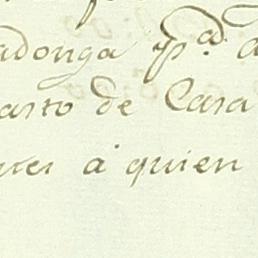 adonga pª. a
asto de Casa
ues á quien